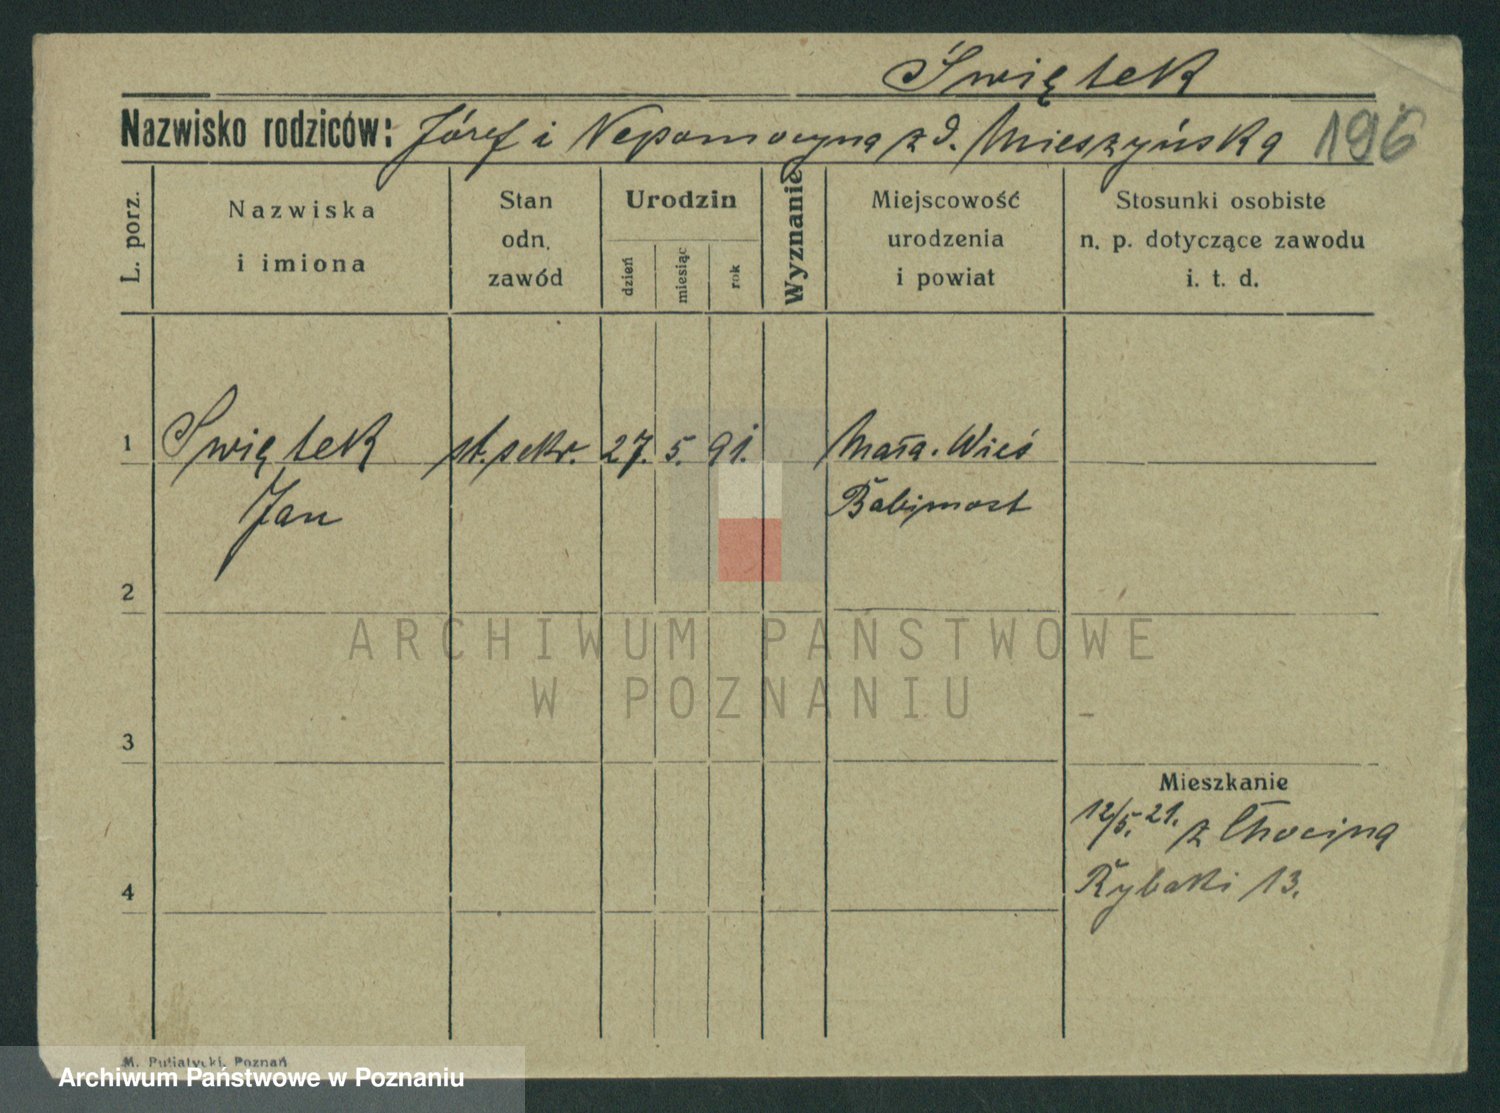 Świętek
Nazwisko rodziców: Józef i Nepomocyna z d. Mieszyńska 196
L. porz.
Nazwiska
i imiona
Stan
odn.
zawód
Urodzin
dzień
miesiąc
rok
Wyznanie
Miejscowość
urodzenia
i powiat
Stosunki osobiste
n. p. dotyczące zawodu
i. t. d.
1 Świętek st. sekr. 27. 5. 91. Mała-Wieś
Jan Babimost
2
ARCHIWUM PAŃSTWOWE
W POZNANIU
3
Mieszkanie
12/5. 21. z Chocina
Rybaki 13.
4
M. Putiatycki, Poznań
Archiwum Państwowe w Poznaniu